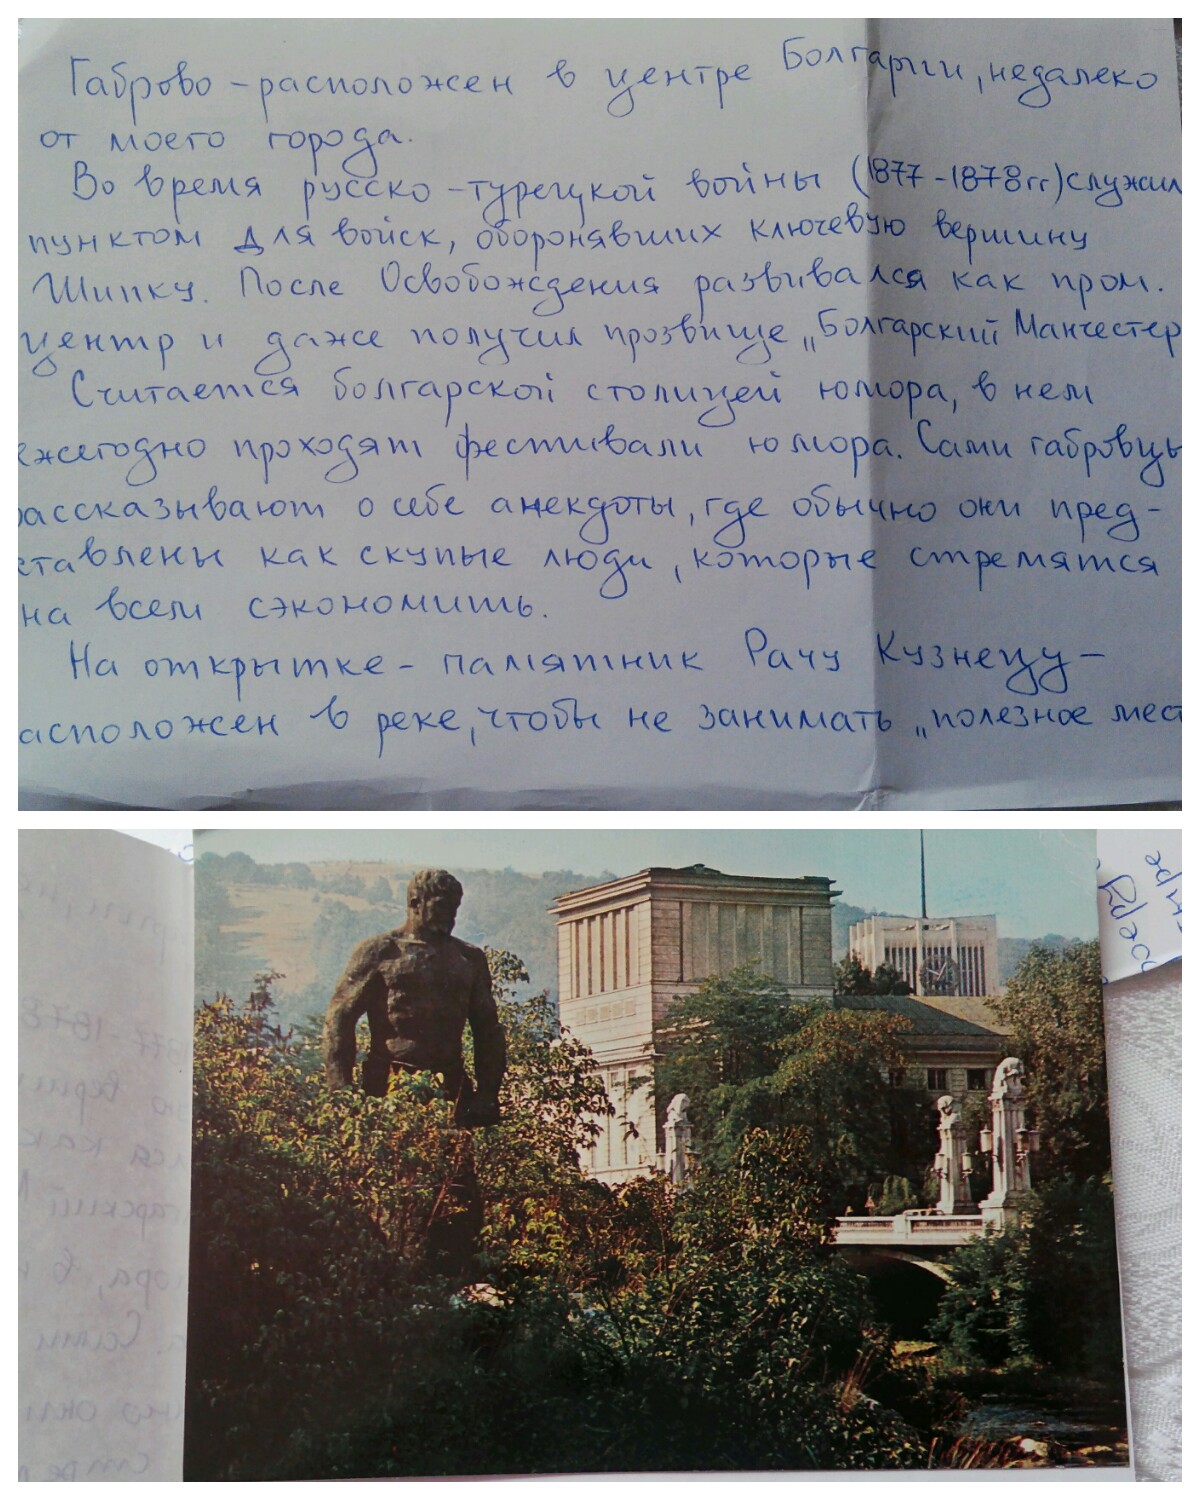 Габрово - расположен в центре Болгарии, недалеко
от моего города.
Во время русско-турецкой войны (1877-1878гг) служил
пунктом для войск, оборонявших ключевую вершину
Шипку. После Освобождения развивался как пром.
центр и даже получил прозвище „Болгарский Манчестер
Считается болгарской столицей юмора, в нем
ежегодно проходят фестивали юмора. Сами габровцы
рассказывают о себе анекдоты, где обычно они пред-
ставлены как скупые люди, которые стремятся
на всем сэкономить.
На открытке - памятник Рачу Кузнецу -
асположен в реке, чтобы не занимать „полезное мес